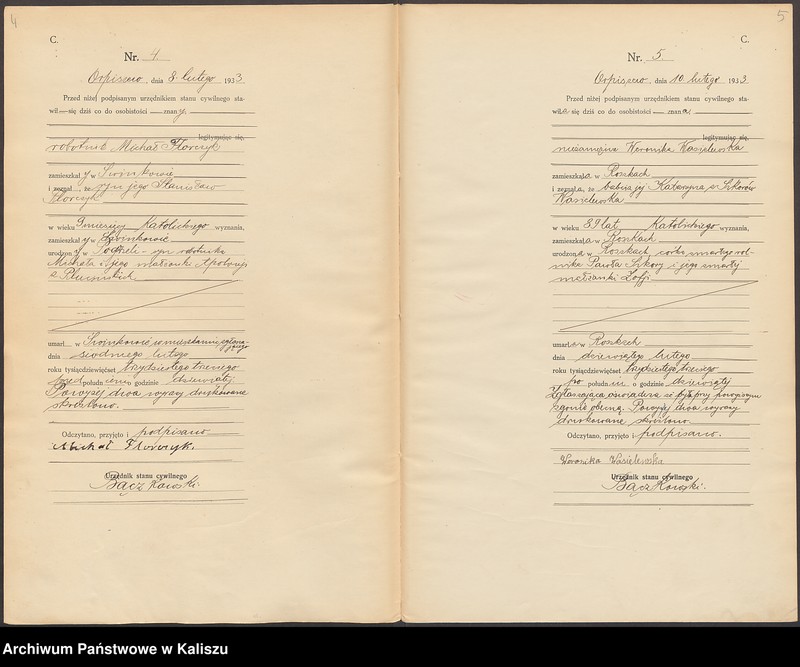 4
C.
Nr. 4.
Orpiszew, dnia 8. lutego 1933
Przed niżej podpisanym urzędnikiem stanu cywilnego sta-
wił — się dziś co do osobistości — znany,
legitymując się,
robotnik Michał Florczyk
zamieszkały w Swinkowie
i zeznał, że syn jego Stanisław
Florczyk
w wieku miesięcy Katolickiego wyznania,
zamieszkały w Swinkowie
urodzony w syn robotnika
Michała i jego małżonki Apolonji
z
umarł w Swinkowie w mieszkaniu zgłaszającego
dnia siódmego lutego
roku tysiącdziewięćset trzydziestego trzeciego
przed południem o godzinie dziewiątej
Powyżej dwa wyrazy drukowane
skreślono.
Odczytano, przyjęto i podpisano
Michał Florczyk.
Urzędnik stanu cywilnego
Bączkowski.
5
C.
Nr. 5.
Orpiszew, dnia 10 lutego 1933
Przed niżej podpisanym urzędnikiem stanu cywilnego sta-
wiła się dziś co do osobistości — znana
legitymując się,
niezamężna Weronika Wasielewska
zamieszkała w Roszkach
i zeznała, że babcia jej Katarzyna z Sikorów
Wasielewska
w wieku 89 lat Katolickiego wyznania,
zamieszkała w Roszkach
urodzona w Roszkach córka zmarłego rol-
nika Pawła Sikory i jego zmarłej
małżonki Zofji
umarła w Roszkach
dnia dziewiątego lutego
roku tysiącdziewięćset trzydziestego trzeciego
po południu o godzinie dziewiątej
Zgłaszająca oświadcza, że była przy powyższym
zgonie obecną. Powyżej dwa wyrazy
drukowane skreślono.
Odczytano, przyjęto i podpisano.
Weronika Wasielewska
Urzędnik stanu cywilnego
Bączkowski.
Archiwum Państwowe w Kaliszu